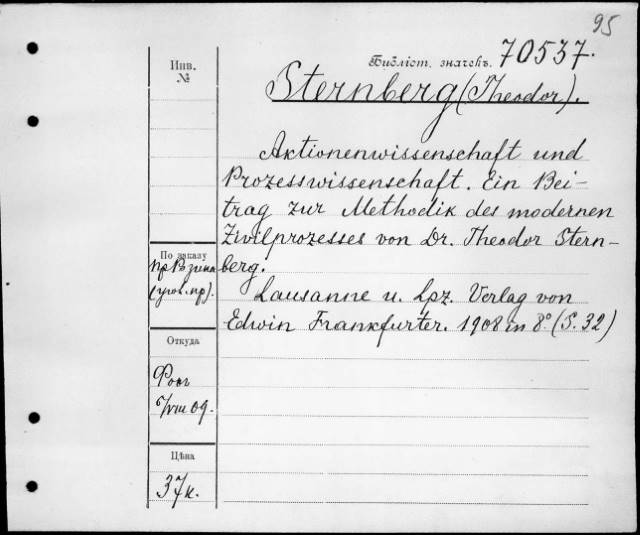 95
Библіот. значекъ. 70537.
Инв.
№
Sternberg (Theodor).
Aktionenwissenschaft und
Prozesswissenschaft. Ein Bei-
trag zur Methodik des modernen
Zivilprozesses von Dr. Theodor Stern-
berg.
Lausanne u. Lpz. Verlag von
Edwin Frankfurter. 1908 in 8º (S. 32)
По заказу
(угол. пр).
Откуда
Фокъ
09.
Цѣна
37к.